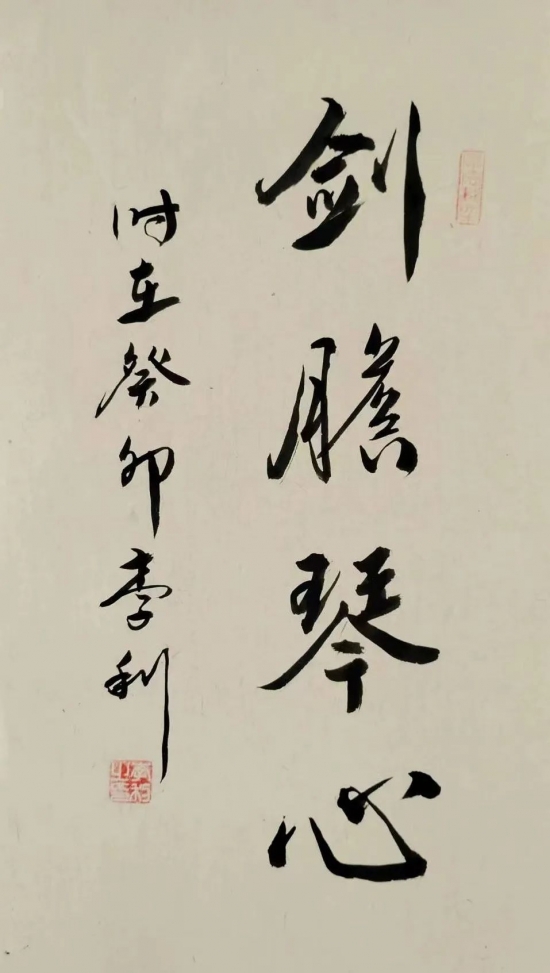 剑胆琴心
时在癸卯李利